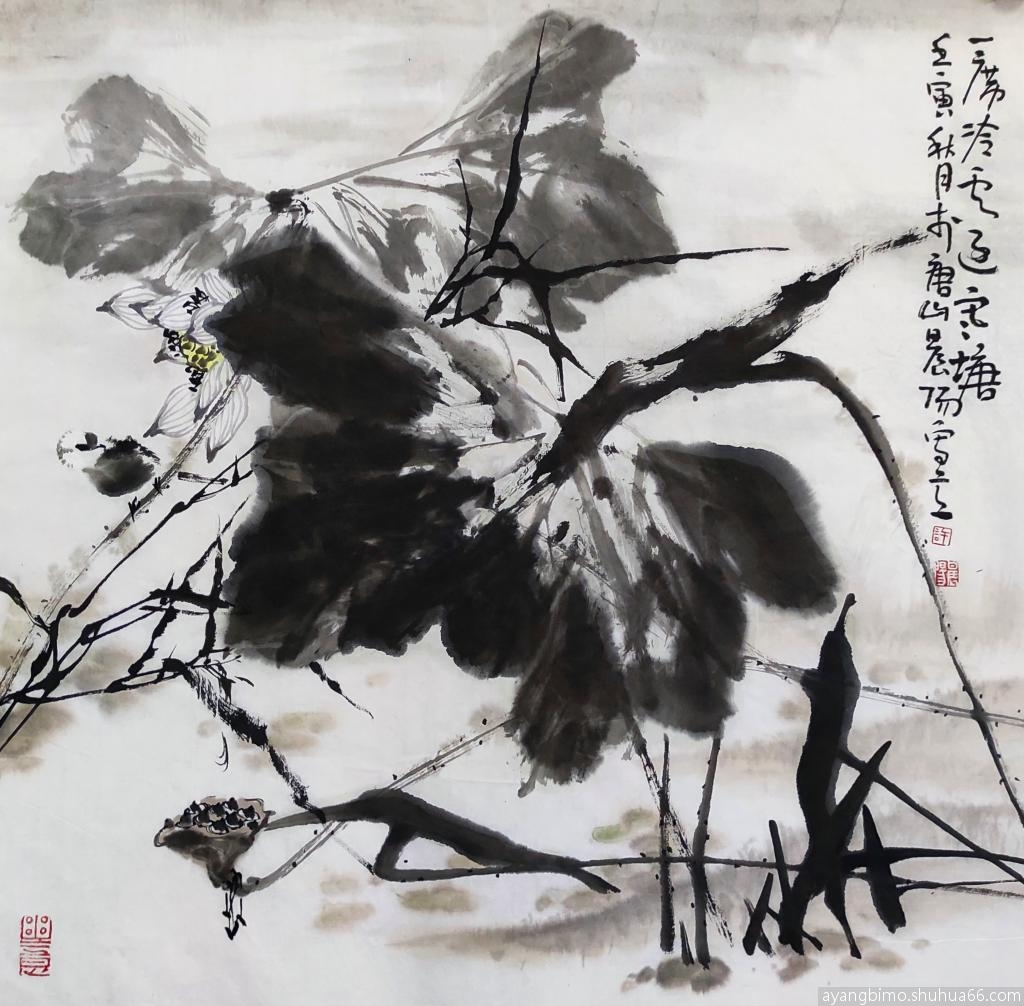 一席冷云过寒塘
壬寅秋月於唐山晨阳写之
許
ayangbimo.shuhua66.com